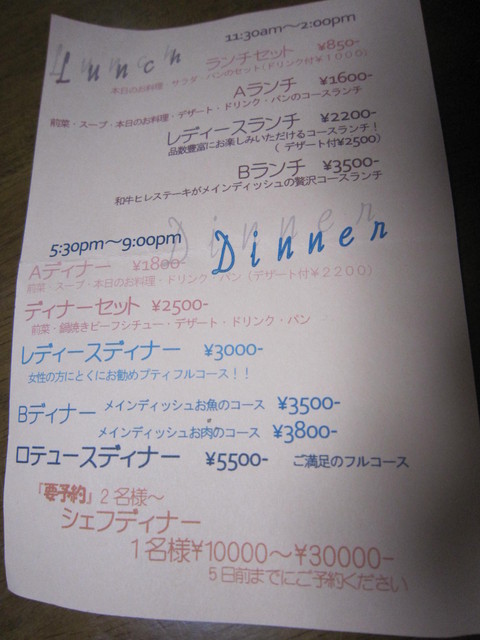 Lunch
11:30am～2:00pm
ランチセット ¥850-
本日のお料理 サラダ・パンのセット(ドリンク付¥1000)
Aランチ ¥1600-
前菜・スープ・本日のお料理・デザート・ドリンク・パンのコースランチ
レディースランチ ¥2200-
品数豊富にお楽しみいただけるコースランチ！
(デザート付¥2500)
Bランチ ¥3500-
和牛ヒレステーキがメインディッシュの贅沢コースランチ
5:30pm～9:00pm
Dinner
Aディナー ¥1800-
前菜・スープ・本日のお料理・ドリンク・パン(デザート付¥2200)
ディナーセット ¥2500-
前菜・鍋焼きビーフシチュー・デザート・ドリンク・パン
レディースディナー ¥3000-
女性の方にとくにお勧めプティフルコース！！
Bディナー メインディッシュお魚のコース ¥3500-
メインディッシュお肉のコース ¥3800-
ロテュースディナー ¥5500- ご満足のフルコース
「要予約」2名様～
シェフディナー
1名様¥10000～¥30000-
5日前までにご予約ください